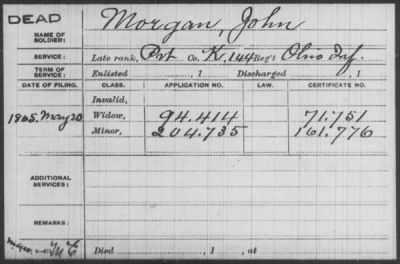 DEAD
NAME OF SOLDIER: Morgan, John
SERVICE: Late rank, Pvt Co. K, 144 Reg't Ohio Inf.
TERM OF SERVICE: Enlisted , 1 Discharged , 1
DATE OF FILING. CLASS. APPLICATION NO. LAW. CERTIFICATE NO.
Invalid,
1865. May 20 Widow, 94.414 71.751
Minor, 204.735 161.776
ADDITIONAL SERVICES:
REMARKS:
Died , 1 , at